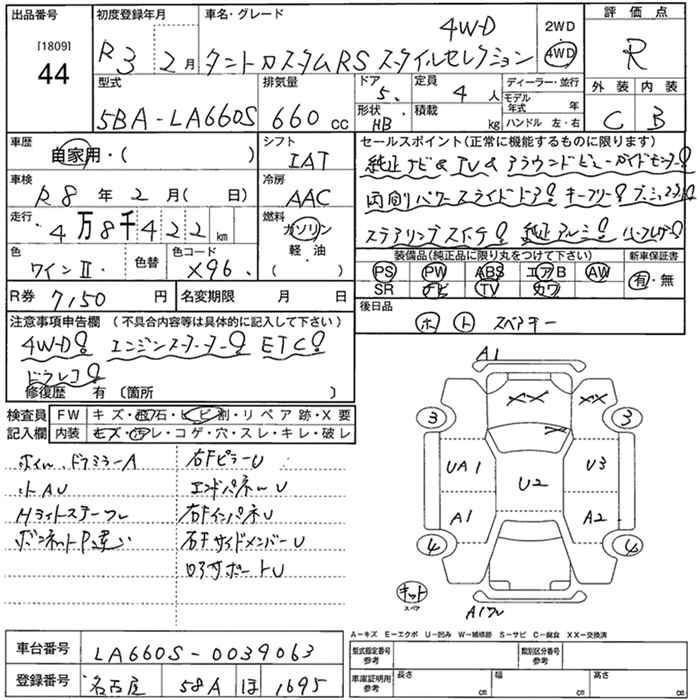 出品番号 初度登録年月 車名・グレード 4WD 2WD 4WD 評価点
[1809]
44
R3 2月 タントカスタムRS スタイルセレクション R
型式 排気量 ドア 定員 ディーラー・並行 外装 内装
5BA-LA660S 660 cc 5 4人 モデル年式 年 C B
形状 HB 積載 kg ハンドル 左・右
車歴 シフト セールスポイント(正常に機能するものに限ります)
自家用・( ) IAT 純正ナビ&TV&アラウンドビューガイドモニター!
車検 冷房 両側パワースライドドア!キーフリー!
R8年2月( 日) AAC
走行 燃料 ステアリングスイッチ!純正アルミ!
4万8千422km ガソリン
色 色替 色コード 軽・油 装備品(純正品に限り丸をつけて下さい) 新車保証書
ワインII X96 ( ) PS PW ABS エアB AW 有・無
SR ナビ TV カワ
R券 7,150円 名変期限 月 日 後日品
ホ ト スペアキー
注意事項申告欄 (不具合内容等は具体的に記入して下さい)
4WD! エンジンスターター! ETC!
ドラレコ!
修復歴 有 〔箇所 〕
検査員 FW キズ・飛石・ヒビ割・リペア跡・X要
記入欄 内装 キズ・汚レ・コゲ・穴・スレ・キレ・破レ
ホイル、ドアミラーA 右FピラーU
トAU エンドパネルU
Hライトステーフレ 右FインパネU
ボンネットP違い 右FサイドメンバーU
ロアサポートU
A1
XX XX
3 X 3
UA1 U2 U3
A1 A2
4 4
キット
スペア
A1フレ
A−キズ E−エクボ U−凹み W−補修跡 S−サビ C−腐食 XX−交換済
車台番号 LA660S-0039063 型式指定番号 参考 類別区分番号 参考
登録番号 名古屋 58A ほ 1695 車庫証明用 参考 長さ cm 幅 cm 高さ cm